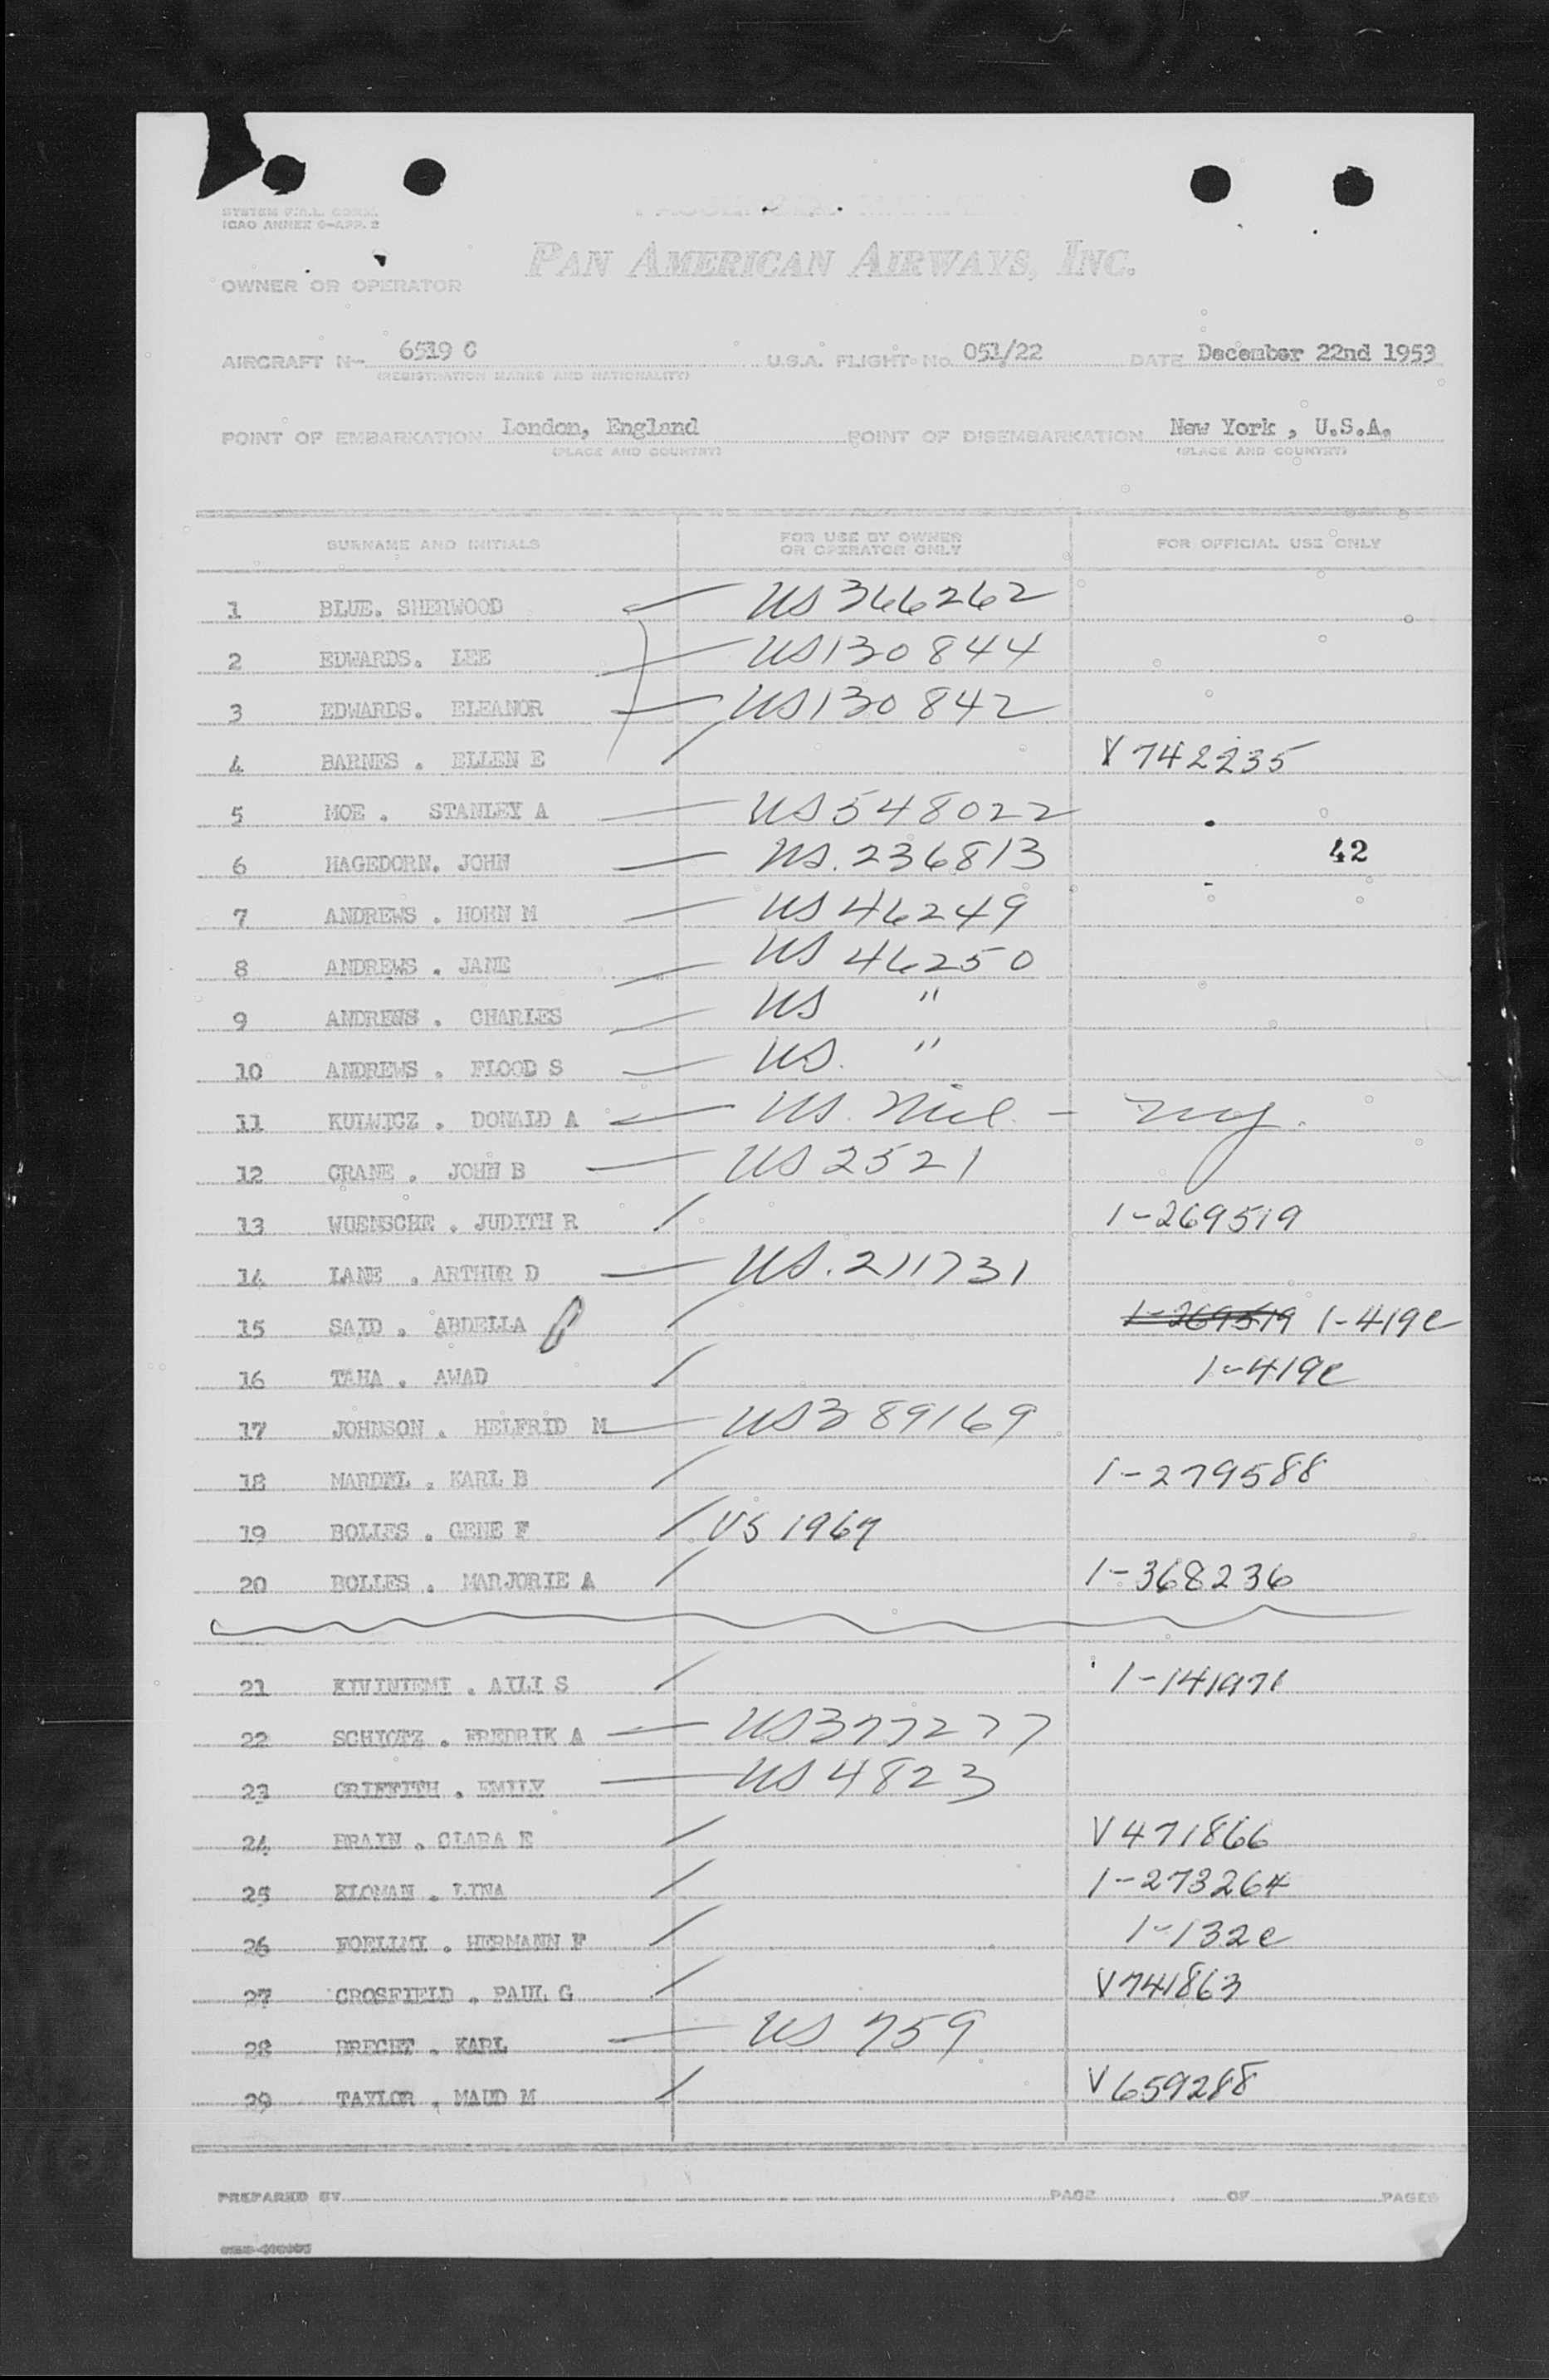 SYSTEM F.A.L. CORP.
ICAO ANNEX 9-APP. 2
PAN AMERICAN AIRWAYS, INC.
OWNER OR OPERATOR
AIRCRAFT N- 6519 C U.S.A. FLIGHT No. 051/22 DATE December 22nd 1953
(REGISTRATION MARKS AND NATIONALITY)
POINT OF EMBARKATION London, England POINT OF DISEMBARKATION New York , U.S.A.
(PLACE AND COUNTRY) (PLACE AND COUNTRY)
SURNAME AND INITIALS FOR USE BY OWNER OR OPERATOR ONLY FOR OFFICIAL USE ONLY
1 BLUE. SHERWOOD US 366262
2 EDWARDS. LEE US 130844
3 EDWARDS. ELEANOR US 130842
4 BARNES . ELLEN E V 742235
5 MOE . STANLEY A US 548022
6 HAGEDORN. JOHN US. 236813 42
7 ANDREWS . HOHN M US 46249
8 ANDREWS . JANE US 46250
9 ANDREWS . CHARLES US "
10 ANDREWS . FLOOD S US. "
11 KULWICZ . DONALD A US. Mil. -
12 CRANE . JOHN B US 2521
13 WUENSCHE . JUDITH R 1-269519
14 LANE . ARTHUR D US. 211731
15 SAID . ABDELLA 1-269519 1-419e
16 TAHA . AWAD 1-419e
17 JOHNSON . HELFRID M US 389169
18 MARDEL . KARL B 1-279588
19 BOLLES . GENE F VS 1967
20 BOLLES . MARJORIE A 1-368236
21 KIVINIEMI . AILI S 1-141971
22 SCHIOTZ . FREDRIK A US 377277
23 GRIFFITH . EMILY US 4823
24 BRAIN . CLARA E V 471866
25 KLOMAN . LINA 1-273264
26 FOELLMI . HERMANN F 1-132e
27 CROSFIELD . PAUL G V 741863
28 BRECHT . KARL US 759
29 TAYLOR . MAUD M V 659288
PREPARED BY PAGE OF PAGES